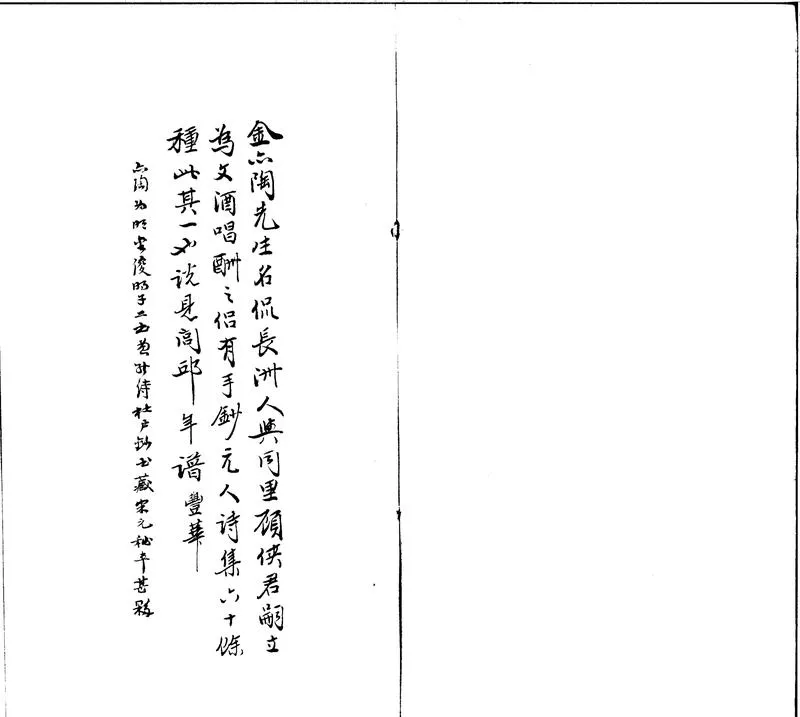 金亦陶先生名侃長洲人與同里顧俠君嗣立
為文酒唱酬之侶有手鈔元人詩集六十餘
種此其一也說見閭邱年譜 豐華
亦陶为明俊明子工詩杜户鈔书藏宋元秘本甚夥